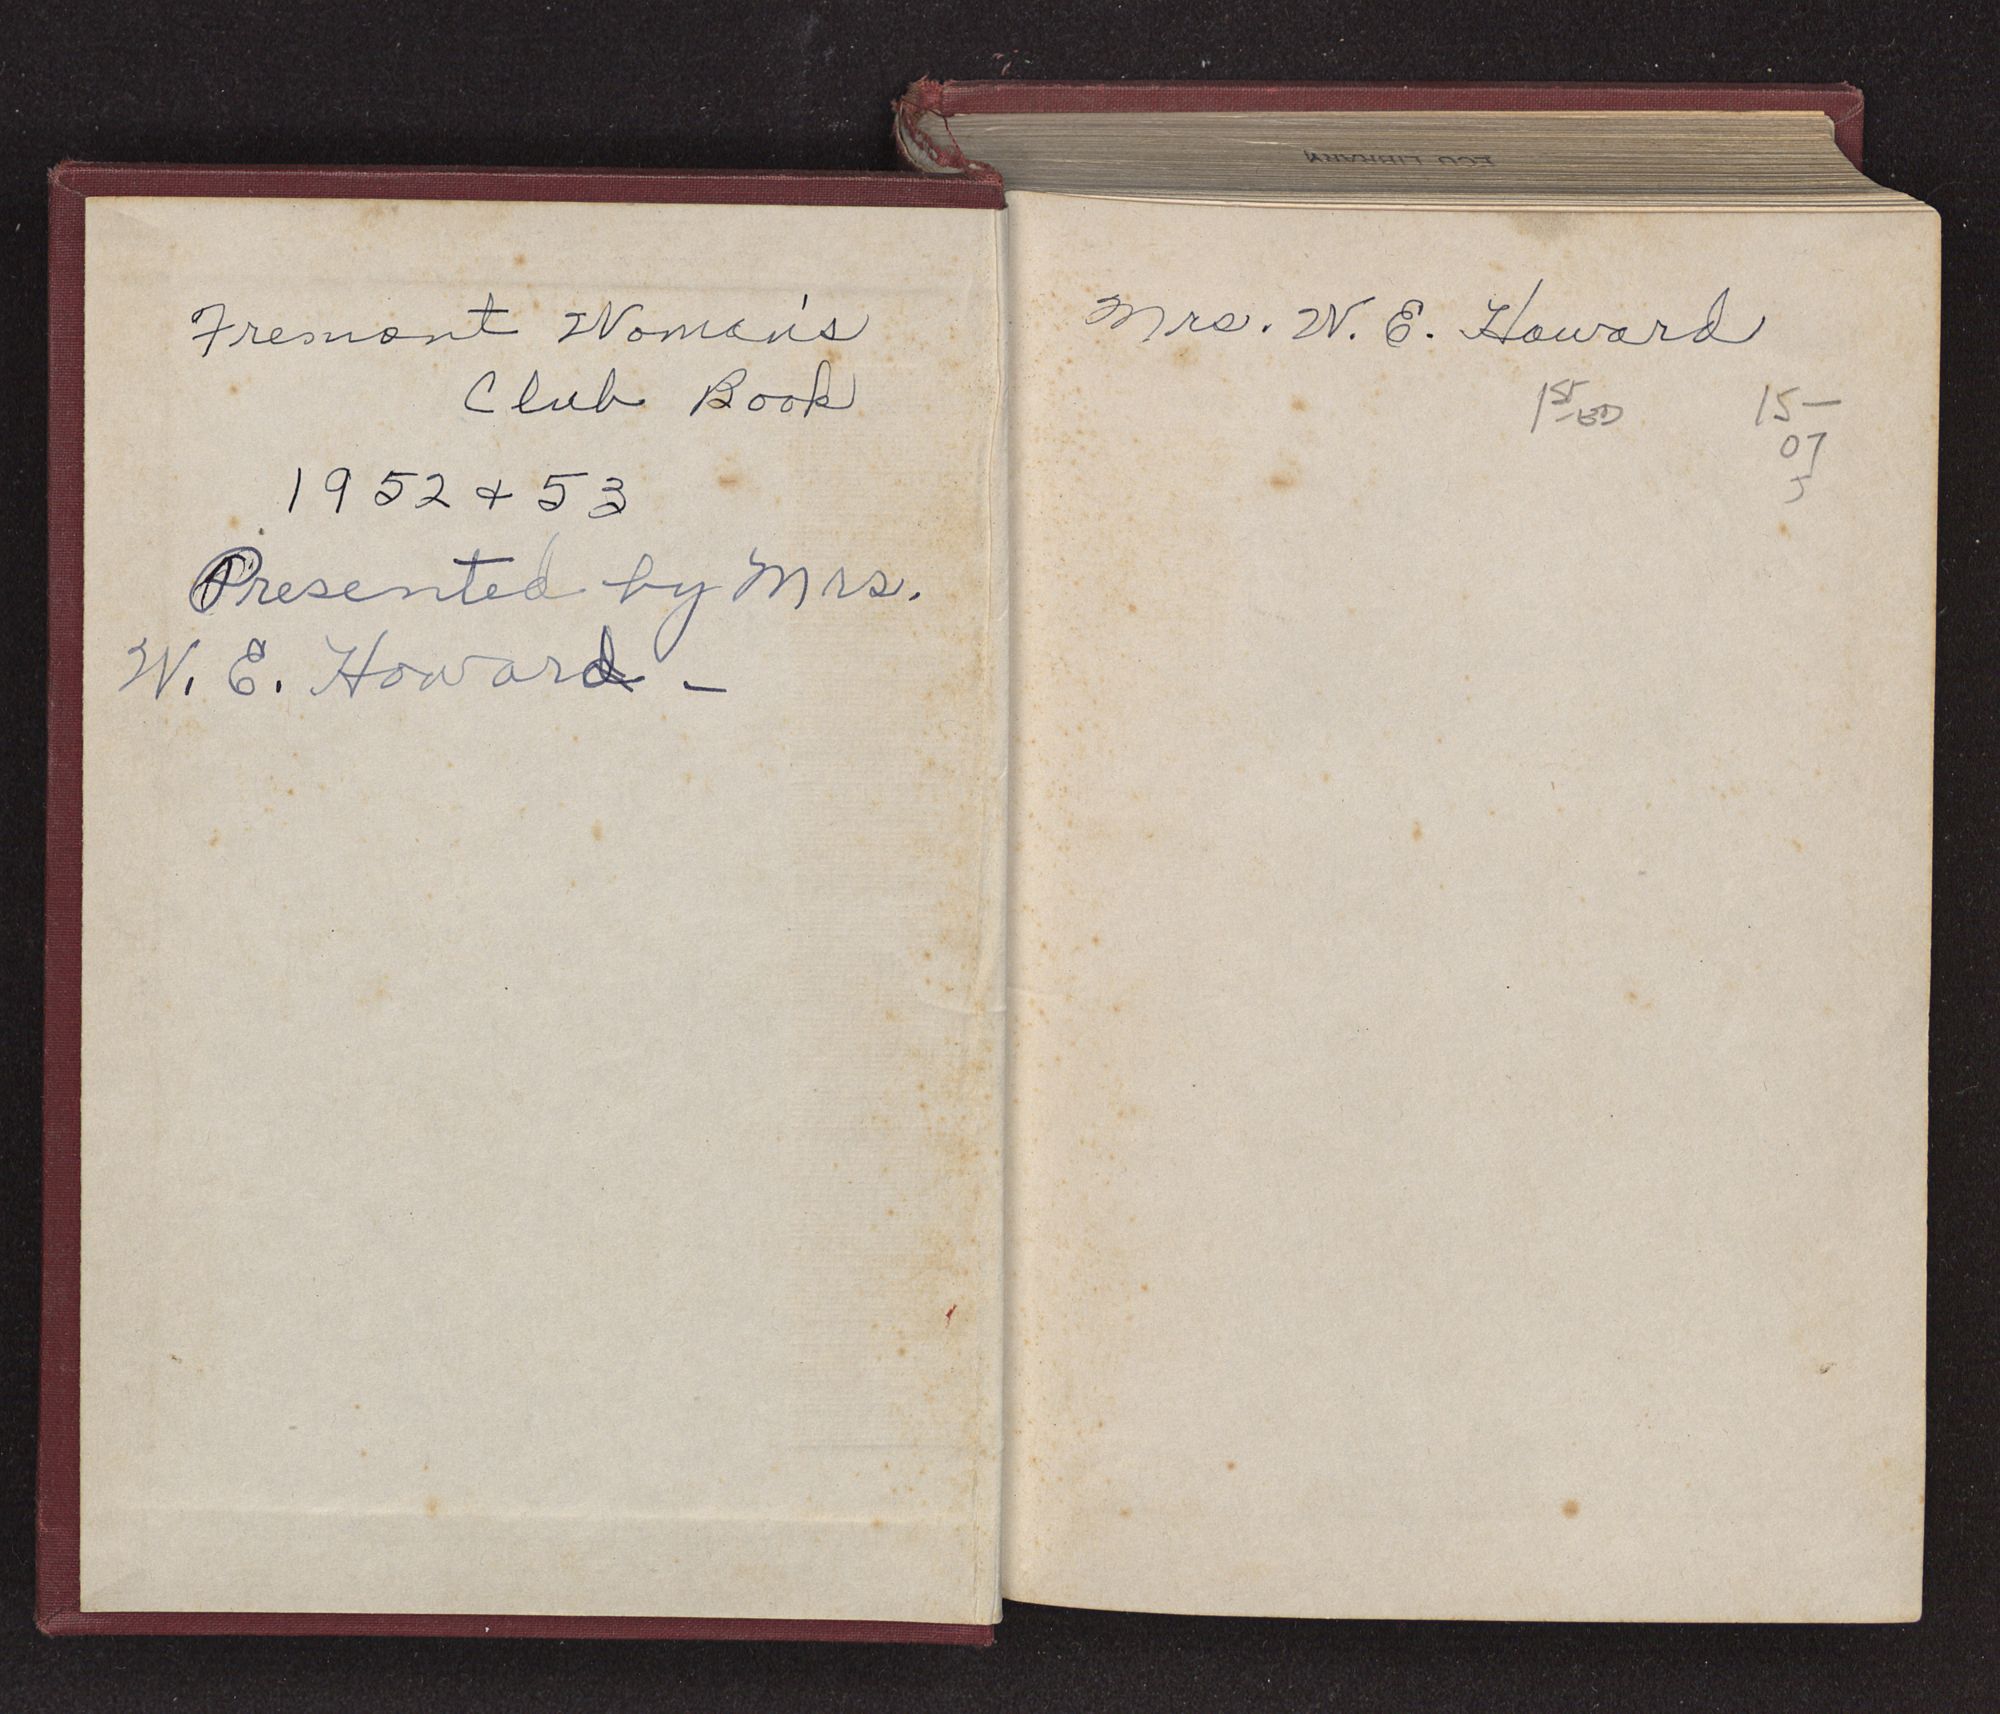 Fremont Woman's
Club Book
1952 + 53
Presented by Mrs.
W. E. Howard -
ECU LIBRARY
Mrs. W. E. Howard
1st ED
15-
07
5